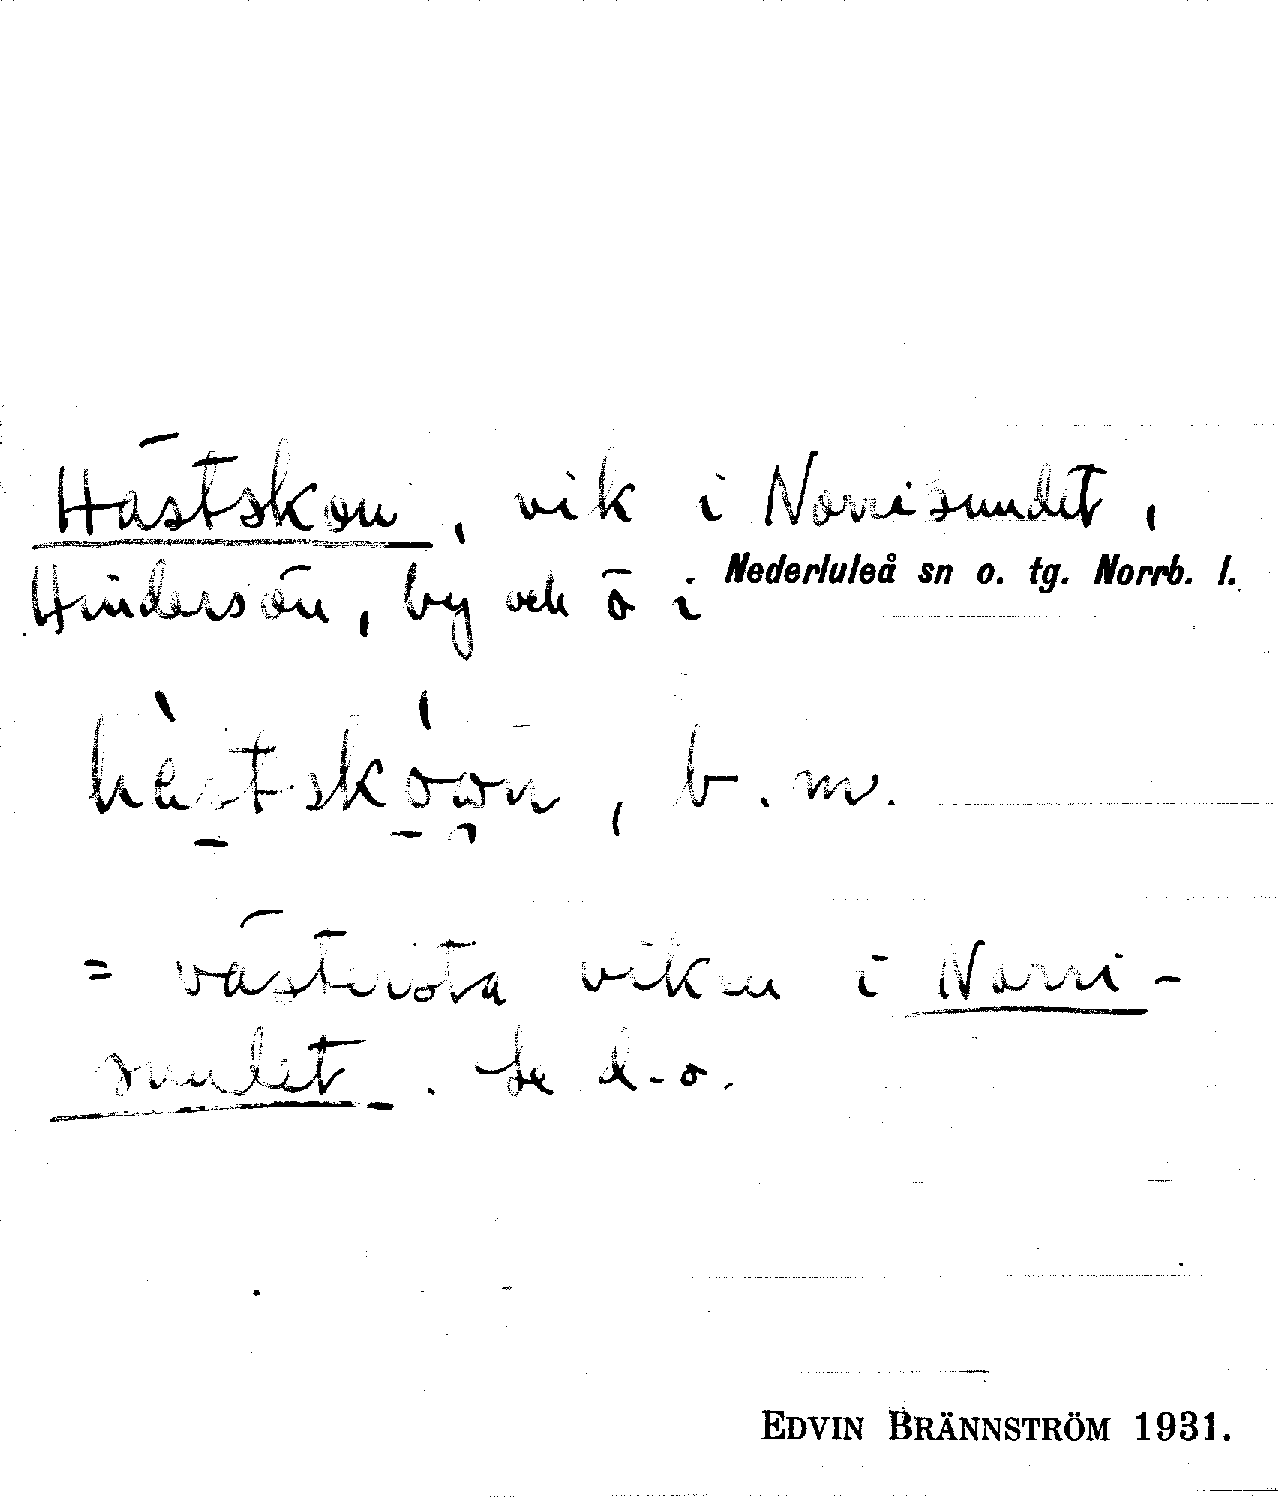 Hästskon, vik i Norrisundet,
Hindersön, by och ö i Nederluleå sn o. tg. Norrb. l.
hè̀stskówn, b. m.
= västersta viken i Norri-
sundet. Se d.o.
EDVIN BRÄNNSTRÖM 1931.